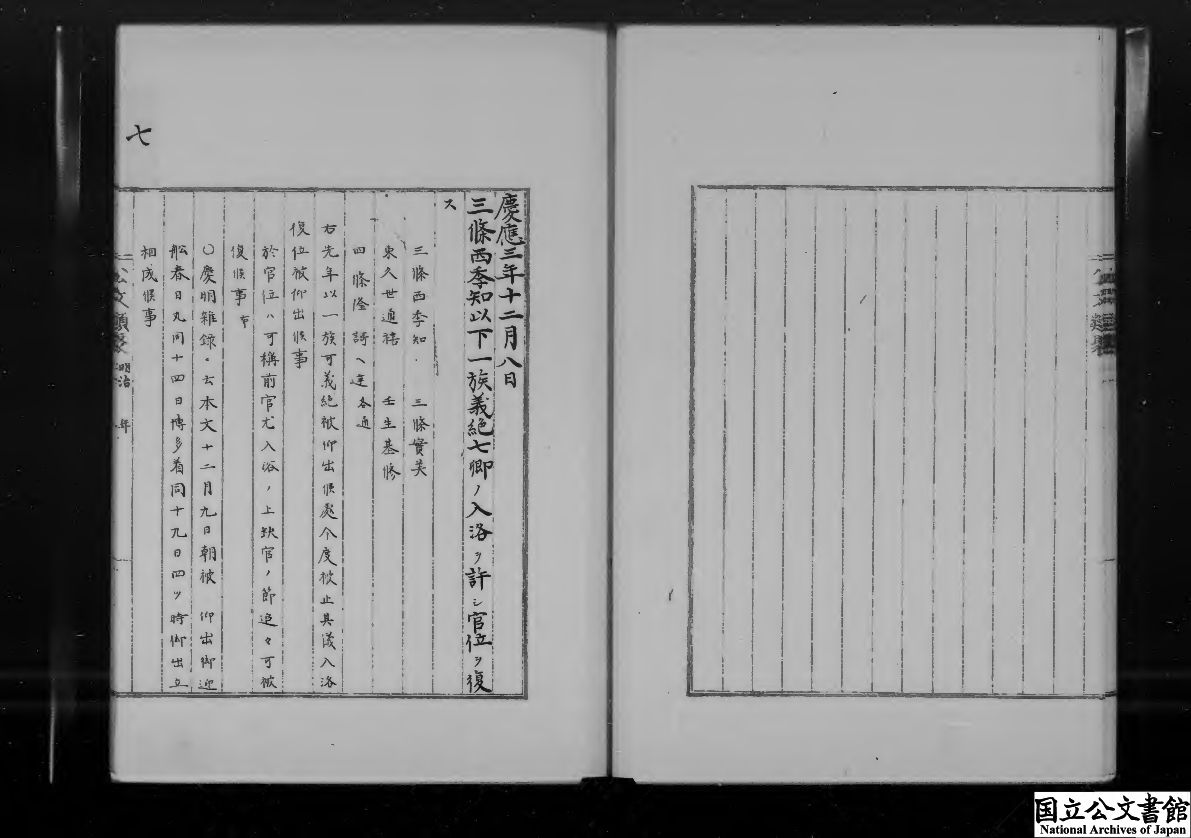 慶應三年十二月八日
三條西季知以下一族義絶七卿ノ入洛ヲ許シ官位ヲ復
ス
三條西季知 三條實美
東久世通禧 壬生基修
四條隆謌ヘ達各通
右先年以一族可義絶被仰出候處今度被止其儀入洛
復位被仰出候事
於官位ハ可稱前官尤入洛ノ上缺官ノ節追々可被
復候事
〇慶明雜録云本文十二月九日朝被 仰出御迎
舩春日丸同十四日博多着同十九日四ツ時御出立
相成候事
公文類聚 明治 年
七
国立公文書館
National Archives of Japan